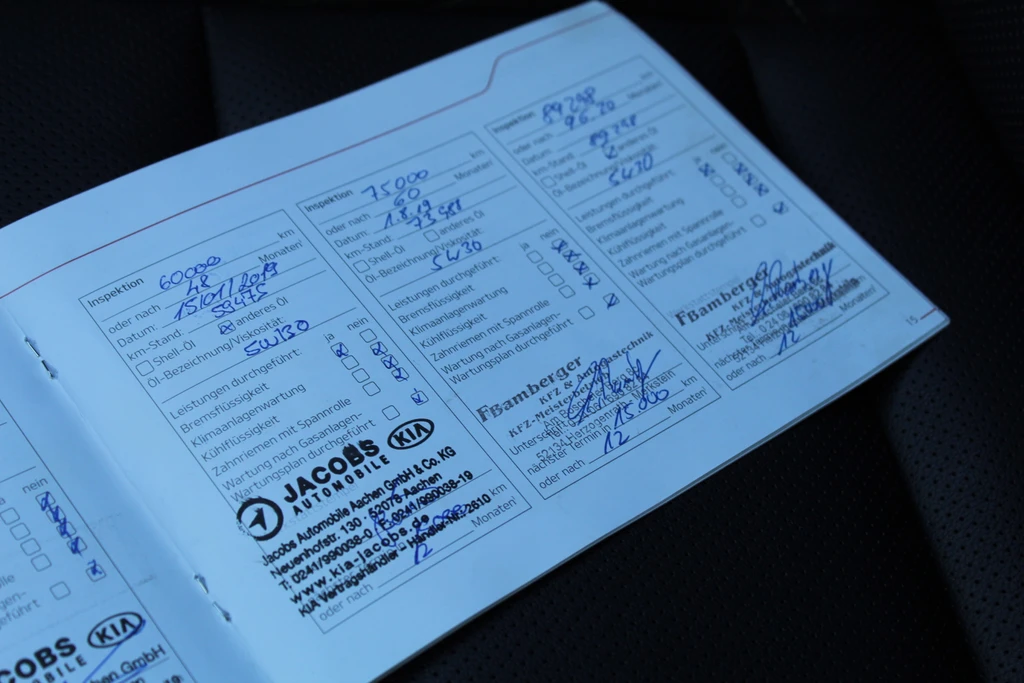 ja nein
führt
COBS
MOBILE
KIA
hen GmbH
Inspektion 60000 km
oder nach 48 Monaten/
Datum: 15/01/2019
km-Stand: 59475
Shell-Öl anderes Öl
Öl-Bezeichnung/Viskosität: 5W130
Leistungen durchgeführt: ja nein
Bremsflüssigkeit
Klimaanlagenwartung
Kühlflüssigkeit
Zahnriemen mit Spannrolle
Wartung nach Gasanlagen-
Wartungsplan durchgeführt
JACOBS KIA
AUTOMOBILE
Jacobs Automobile Aachen GmbH & Co. KG
Neuenhofstr. 130 · 52078 Aachen
T: 0241/990038-0 · F: 0241/990038-19
www.kia-jacobs.de km
KIA Vertragshändler - Händler-Nr.: 2610
oder nach 12 Monaten/
Inspektion 75000 km
oder nach 60 Monaten/
Datum: 1.8.19
km-Stand:
Shell-Öl anderes Öl
Öl-Bezeichnung/Viskosität: 5W30
Leistungen durchgeführt: ja nein
Bremsflüssigkeit
Klimaanlagenwartung
Kühlflüssigkeit
Zahnriemen mit Spannrolle
Wartung nach Gasanlagen-
Wartungsplan durchgeführt
Bamberger
KFZ & technik
KFZ-Meisterbe
52134 Herzogenrath
nächster Termin in 15000 km
oder nach 12 Monaten/
Inspektion 89298 km
oder nach Monaten/
Datum
km-Stand: 89298
Shell-Öl anderes Öl
Öl-Bezeichnung/Viskosität:
Leistungen durchgeführt: ja nein
Bremsflüssigkeit
Klimaanlagenwartung
Kühlflüssigkeit
Zahnriemen mit Spannrolle
Wartung nach Gasanlagen-
Wartungsplan durchgeführt
Bamberger
KFZ technik
oder nach 12 Monaten/
15